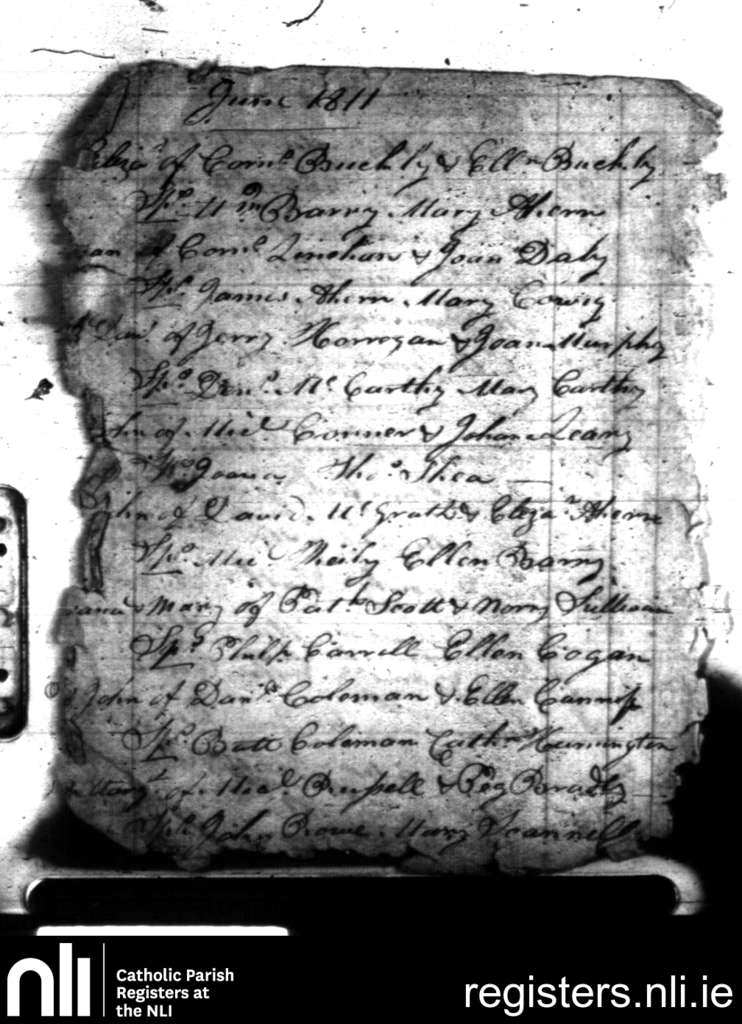 June 1811
Eliza.r of Corn.s Buckly & Ell.n Buckly
Sp.s W.m Barry Mary Ahern
of Corn.s Linehan & Joan Daly
Sp.s James Ahern Mary
Dan.l of Jerry Horrogan & Joan Murphy
Sp.s Den.s Mc Carthy Mary Carthy
of Mic.l Conner & Johana Leary
Sp.s Joana Tho.s Shea
John of David McGrath & Eliza.r Ahern
Sp.s Mic.l Ellen Barry
& Mary of Pat.k Scott & Norry Sullivan
Sp.s Philip Carrell Ellen Cogan
John of Dan.l Coleman & Ellen
Sp.s Batt Coleman Cath.n
Mary of Mic.l Russell & Peg Bradly
Sp.s John Rowe Mary
nli
Catholic Parish
Registers at
the NLI
registers.nli.ie